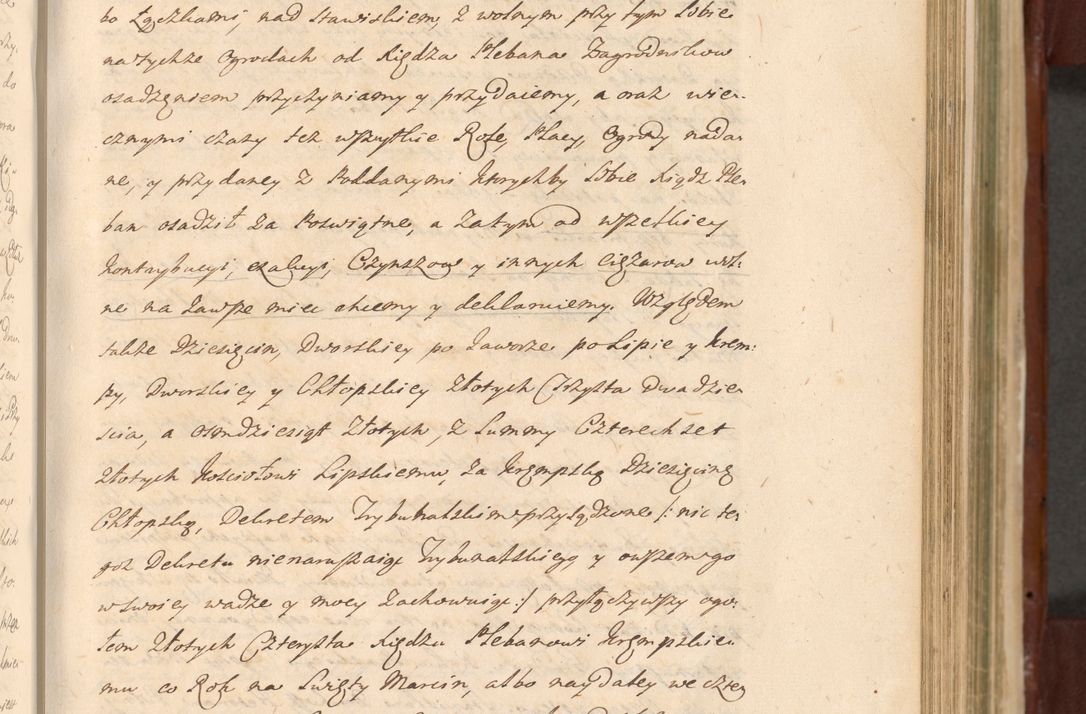 bo Łączkami, nad Stawiskiem, z wolnym przy tym Sobie
na tychże Ogrodach od Xiędza Plebana Zagrodników
osadzeniem przyczyniamy y przydaiemy, a oraz wie-
cznymi czasy też wszytkie Role, Place, Ogrody nada-
ne, y przydaney z Poddanymi ktorychby Sobie Xiądz Ple-
ban osadził za Poswiątne, a zatym od wszelkiey
kontrybucyi, exakcyi, Czynszow y innych ciężarow wol-
ne na zawsze miec chcemy y deklaruiemy. Względem
także Dziesięcin, Dworskiey po Jaworze, po Lipie y krem-
py, Dworskiey y Chłopskiey złotych Trzysta dwadzie-
scia, a osmdziesiąt złotych, z Summy Czterechset
złotych Kosciołowi Lipskiemu, za krempską Dziesięcinę
Chłopską, Dekretem Trybunalskim przysądzone /: nic te-
goż Dekretu nienaruszaiąc Trybunalskiego y owszem ego
w swoiey wadze y mocy zachowuiąc :/ przyłączywszy ogo-
łem złotych Czterysta Xiędzu Plebanowi krempskie-
mu co Rok na Swięty Marcin, albo naydaley we czter